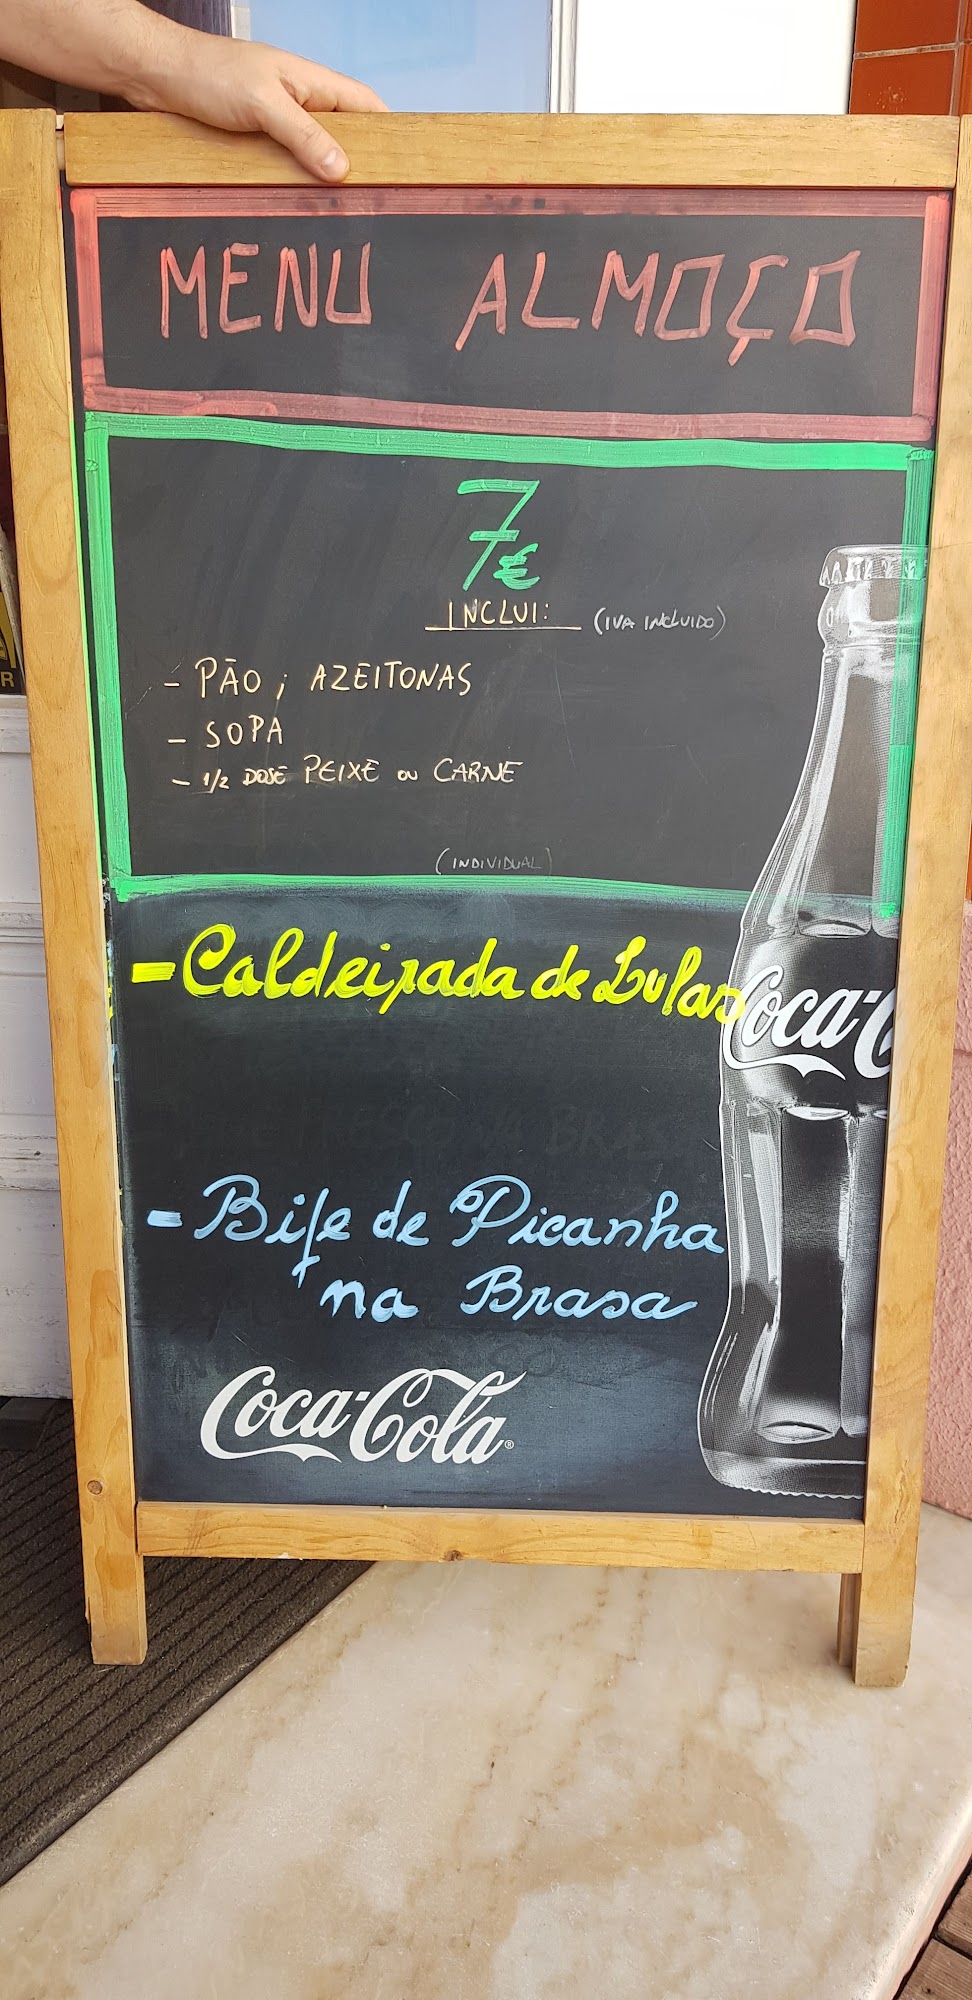 MENU ALMOÇO
7€
INCLUI: (IVA INCLUIDO)
- PÃO ; AZEITONAS
- SOPA
- 1/2 DOSE PEIXE ou CARNE
(INDIVIDUAL)
- Caldeirada de Lulas
Coca-C
- Bife de Picanha
na Brasa
Coca-Cola®
R